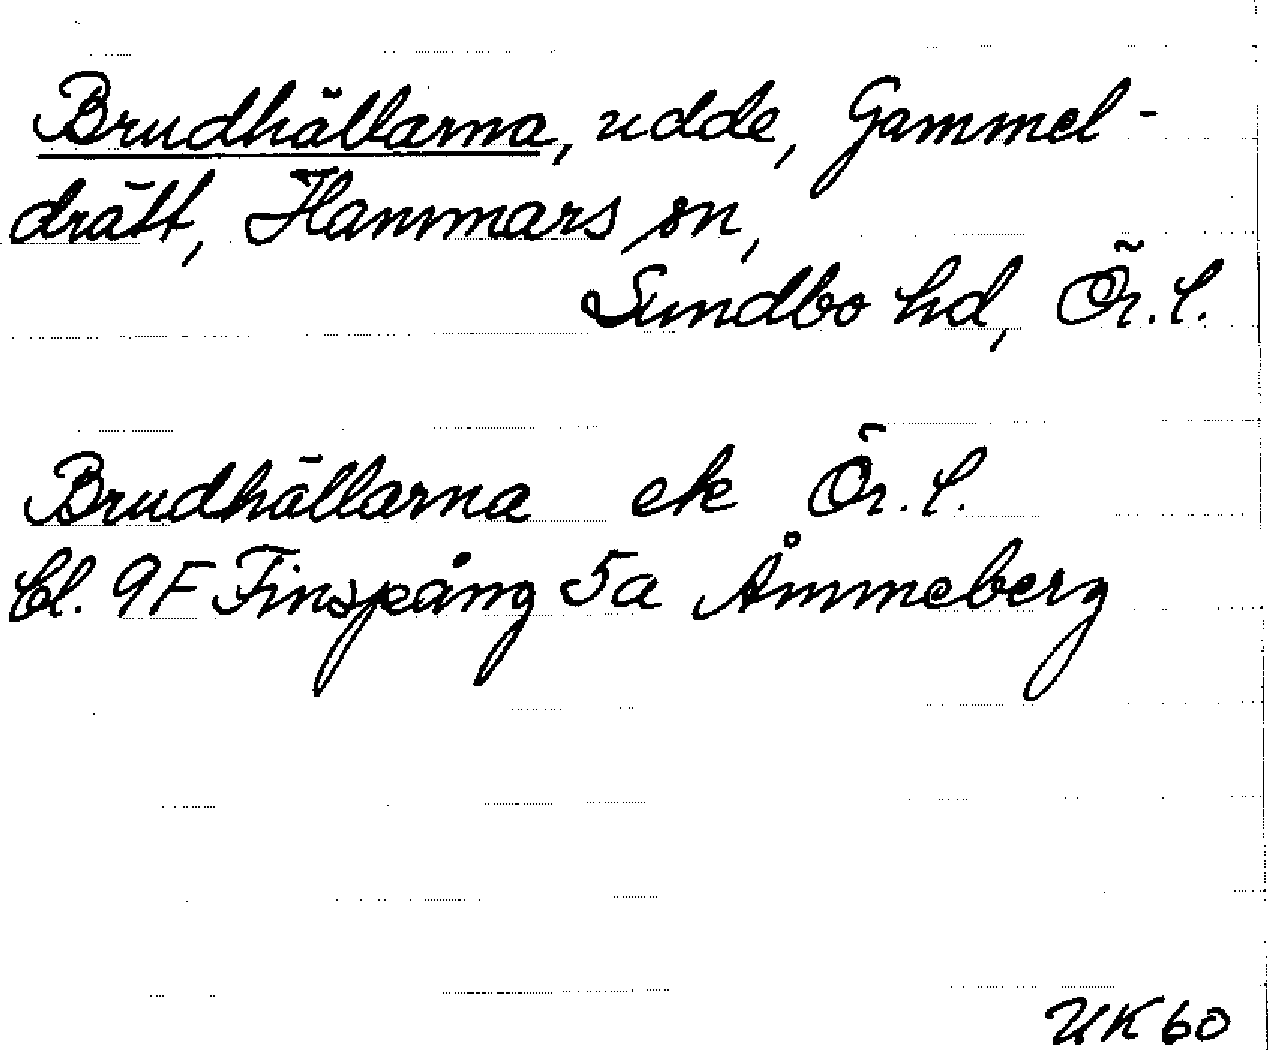 Brudhällarna, udde, Gammel-
drätt, Hammars sn,
Sundbo hd, Ör. l.
Brudhällarna ek Ör. l.
bl. 9F Finspång 5a Åmmeberg
UK 60